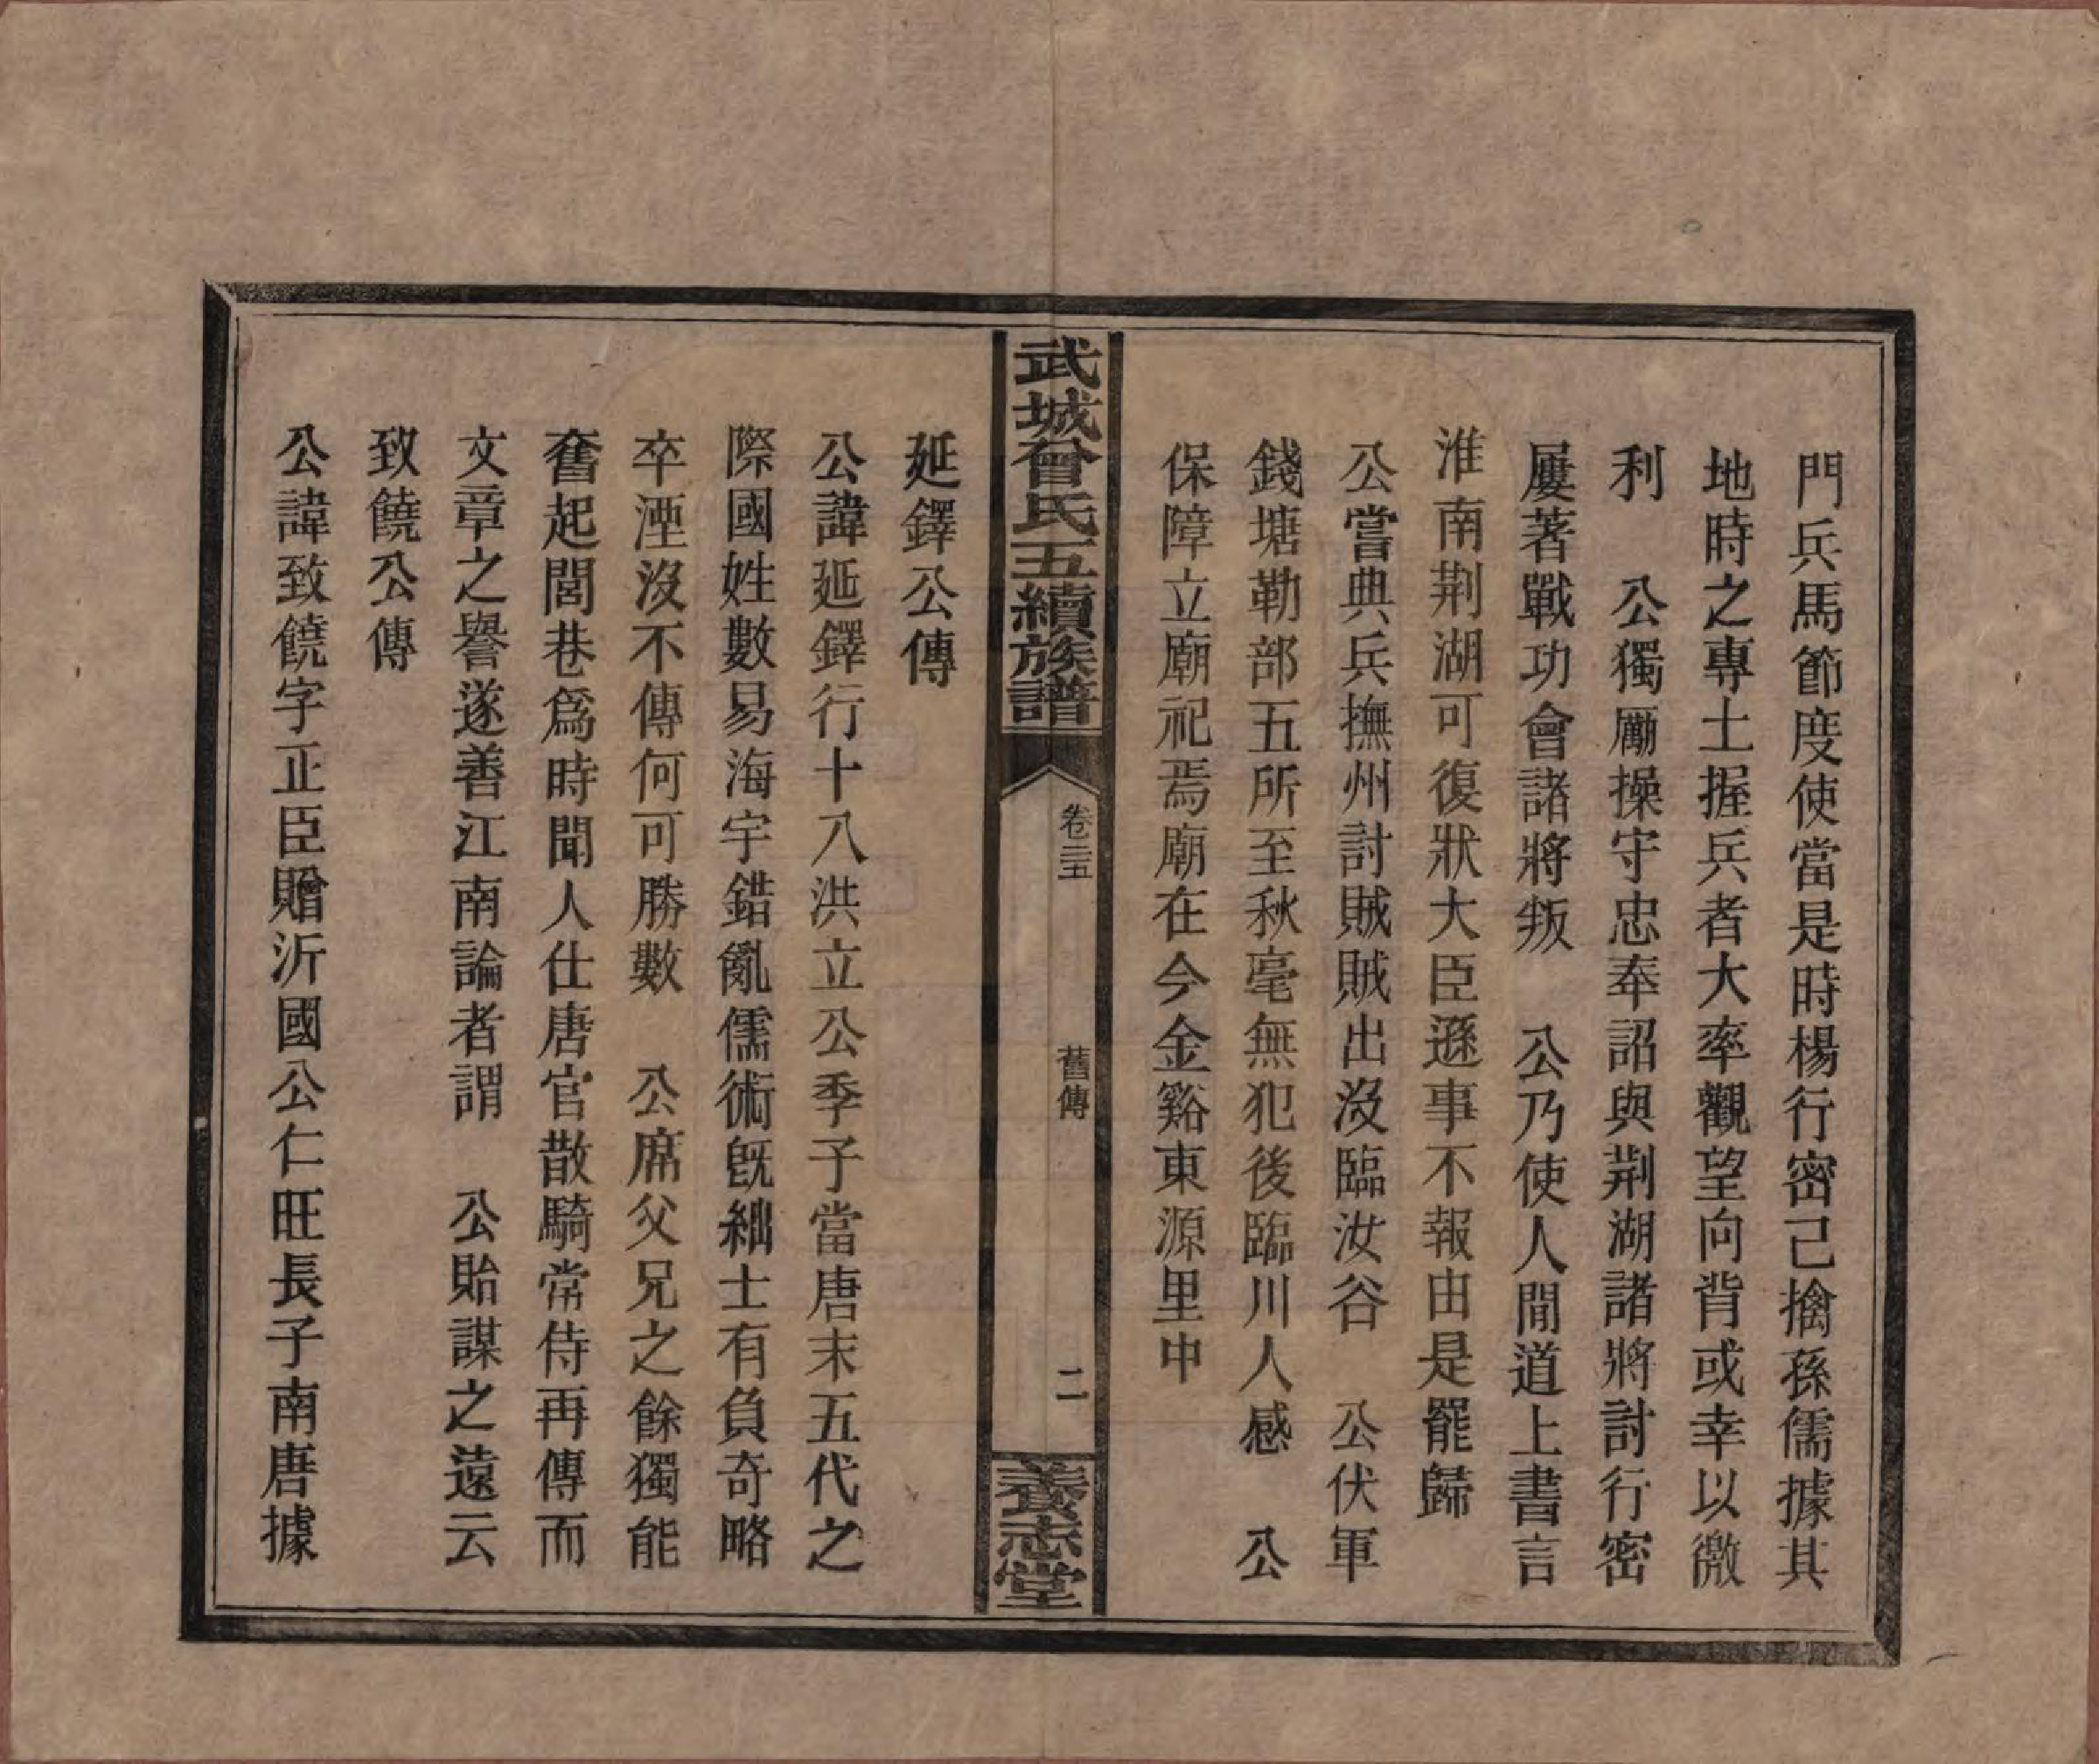 門兵馬節度使當是時楊行密己擒孫儒據其
地時之專土握兵者大率觀望向背或幸以徼
利　公獨勵操守忠奉詔與荆湖諸將討行密
屢著戰功會諸將叛　公乃使人間道上書言
淮南荆湖可復狀大臣遜事不報由是罷歸
公嘗典兵撫州討賊賊出沒臨汝谷　公伏軍
錢塘勒部五所至秋毫無犯後臨川人感　公
保障立廟祀焉廟在今金谿東源里中
武城曾氏五續族譜
卷三五
舊傳
二
養志堂
延鐸公傳
公諱延鐸行十八洪立公季子當唐末五代之
際國姓數易海宇錯亂儒術旣絀士有負奇略
卒湮沒不傳何可勝數　公席父兄之餘獨能
奮起閭巷爲時聞人仕唐官散騎常侍再傳而
文章之譽遂善江南論者謂　公貽謀之遠云
致饒公傳
公諱致饒字正臣贈沂國公仁旺長子南唐據